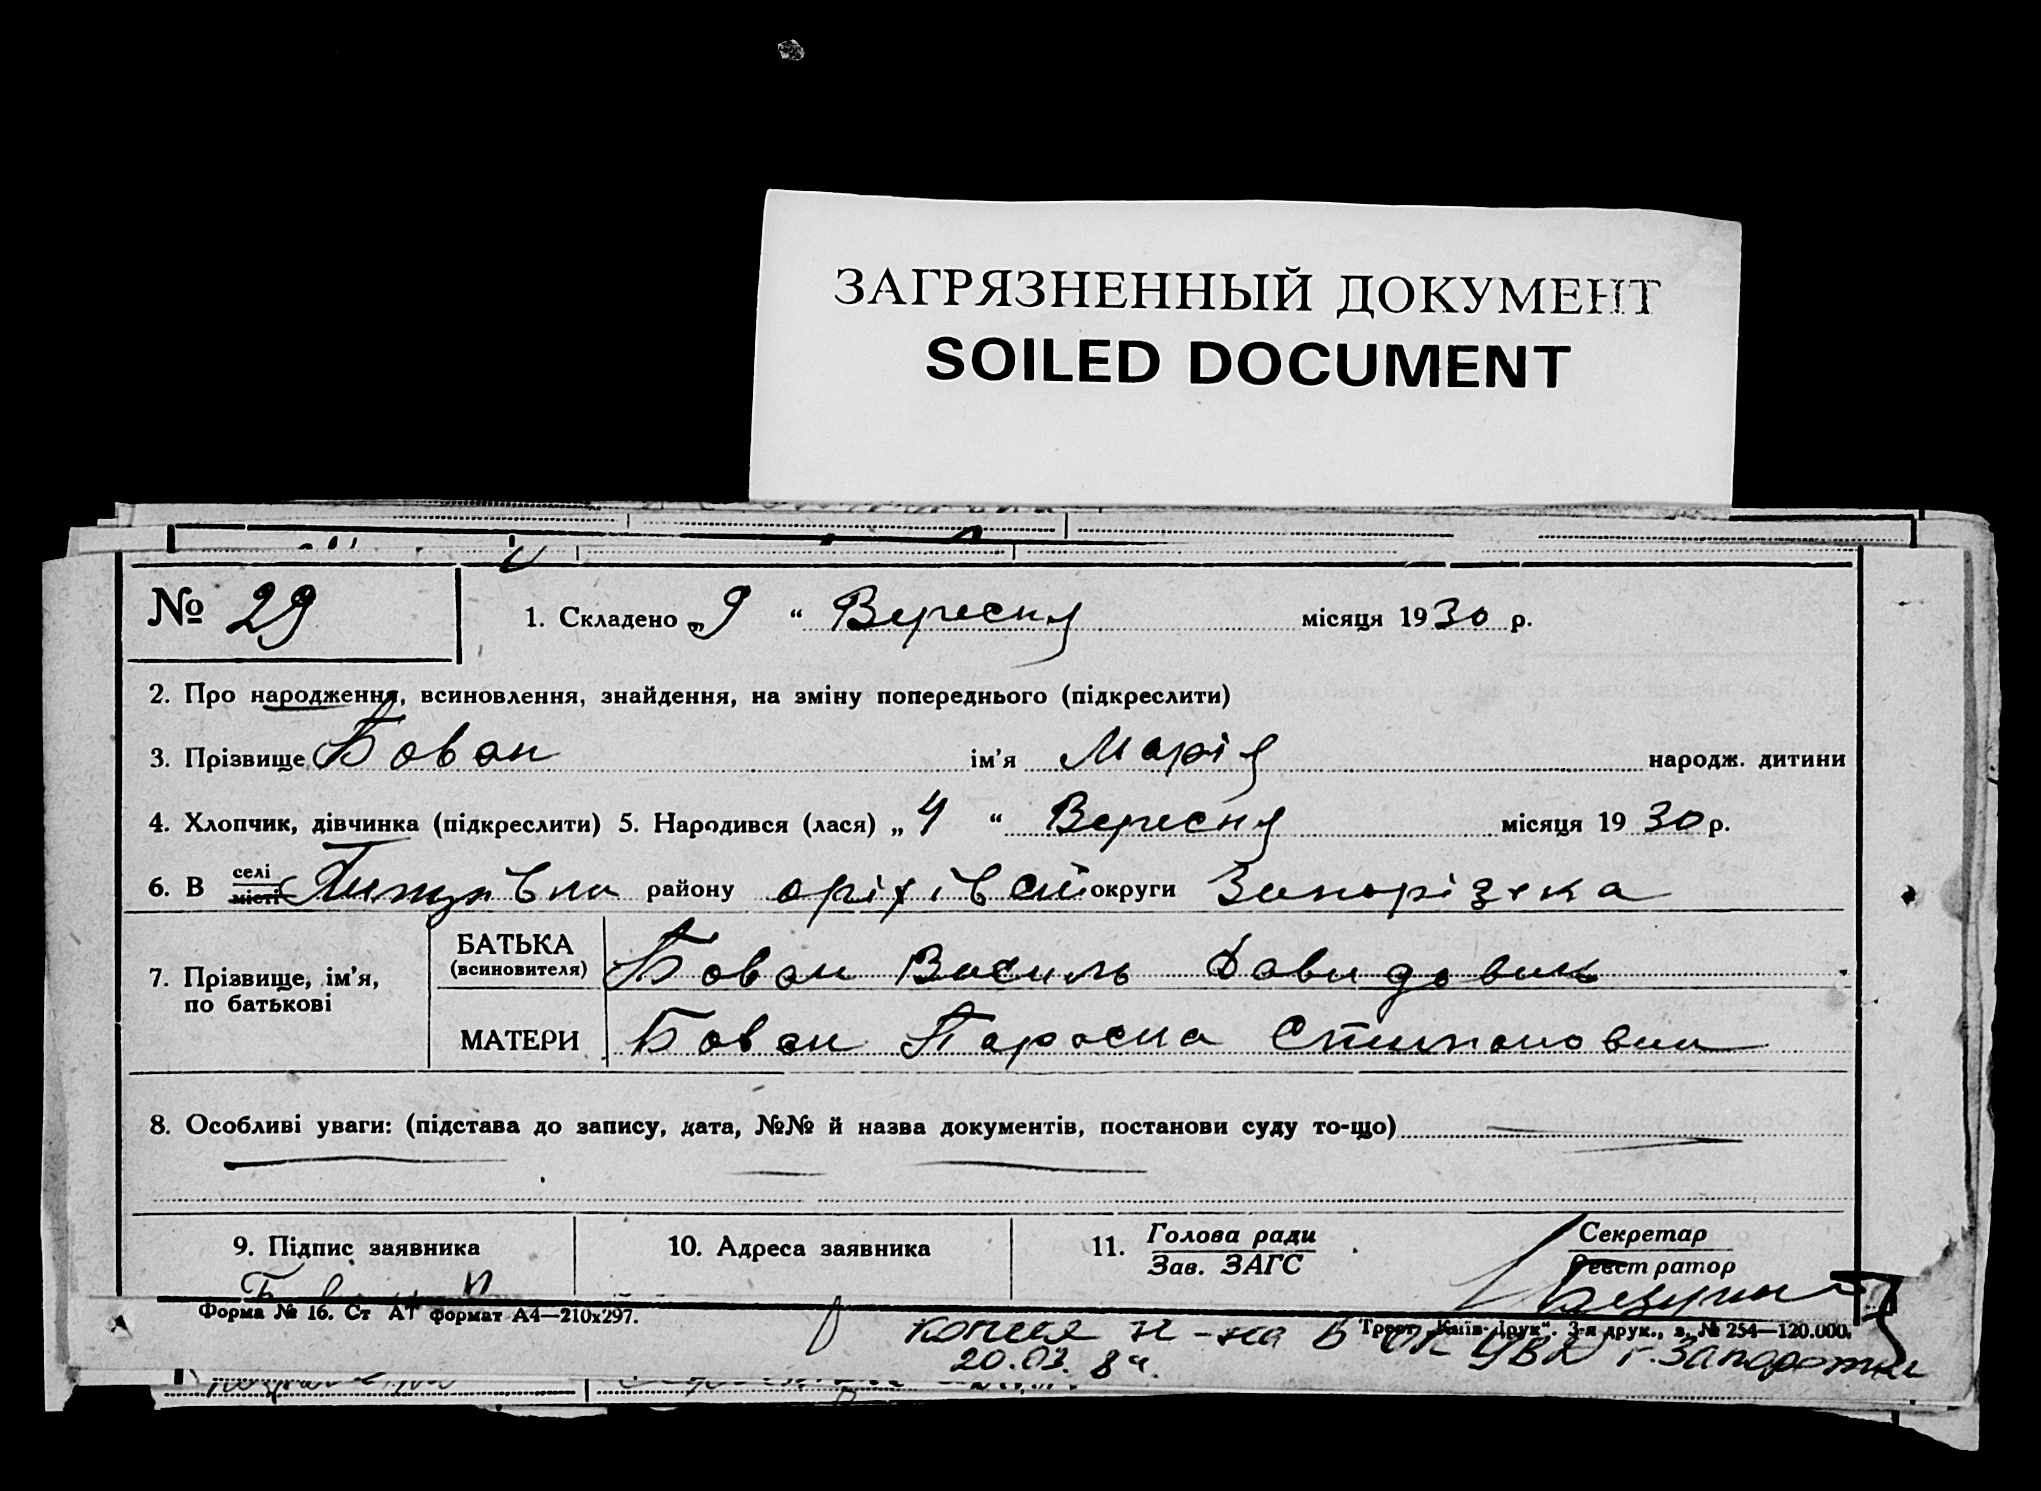 ЗАГРЯЗНЕННЫЙ ДОКУМЕНТ
SOILED DOCUMENT
№ 29
1. Складено „ 9 “ Вересня місяця 1930 р.
2. Про народження, всиновлення, знайдення, на зміну попереднього (підкреслити)
3. Прізвище Бован ім'я Марія народж. дитини
4. Хлопчик, дівчинка (підкреслити) 5. Народився (лася) „ 4 “ Вересня місяця 1930 р.
6. В селі
місті району оріхівськ округи Запорізька
7. Прізвище, ім'я,
по батькові
БАТЬКА
(всиновителя)
Бован Василь Давидович
МАТЕРИ Бован Параска Степановна
8. Особливі уваги: (підстава до запису, дата, №№ й назва документів, постанови суду то-що)
9. Підпис заявника
10. Адреса заявника
11. Голова ради
Зав. ЗАГС
Секретар
Реєстратор
Форма № 16. Ст А1 формат А4—210х297.
Трест „Київ-Друк“. 3-я друк., з. № 254—120.000.
копия н-на в ОК УВД г. Запорожье
20.03.84.